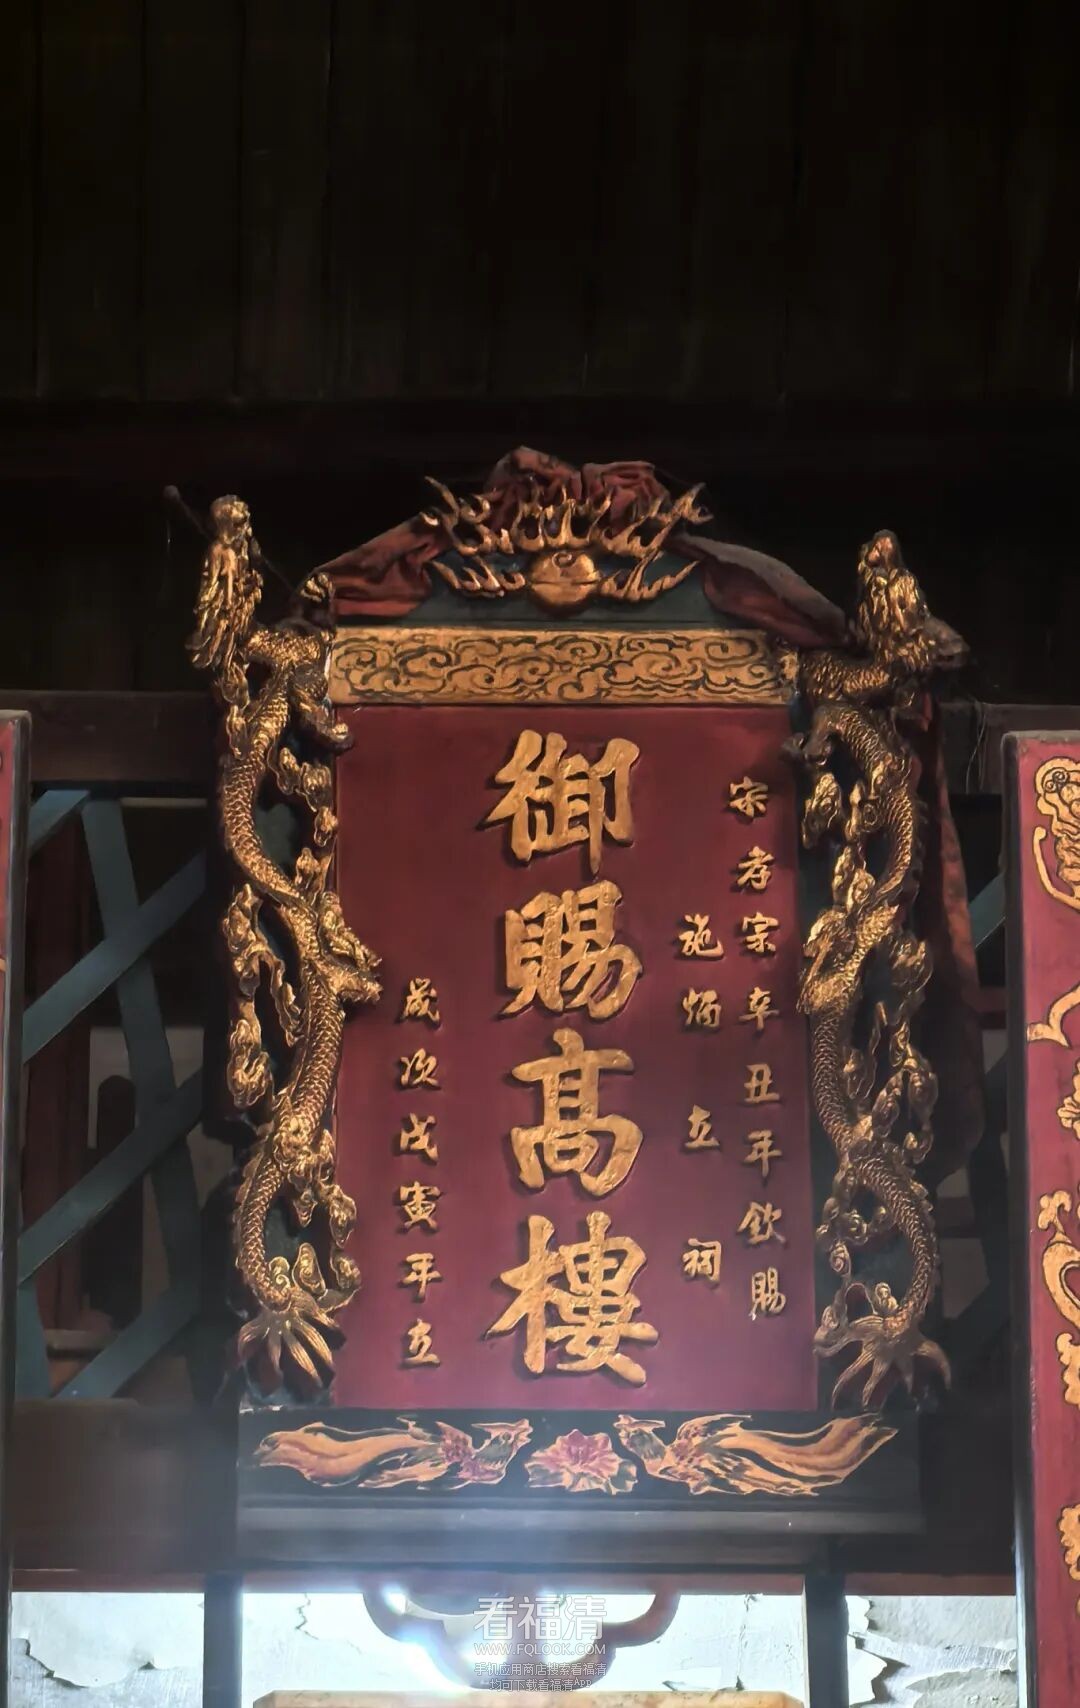 宋孝宗辛丑年欽賜
施炳立祠
御賜高樓
歲次戊寅年立
看福清
WWW.FQLOOK.COM
手机应用商店搜索看福清
均可下载看福清APP